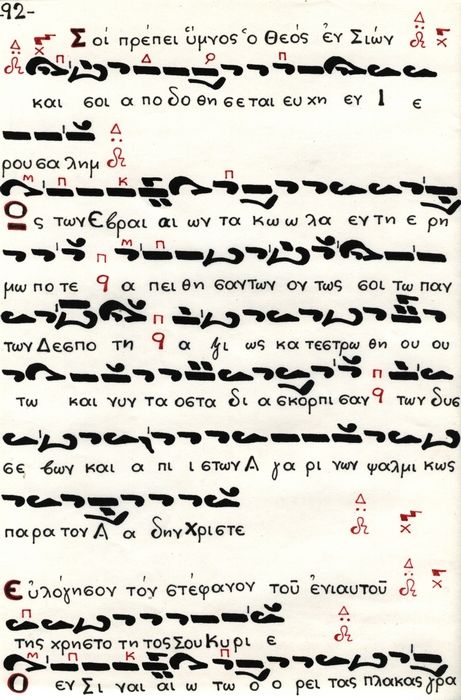 -92-
Σοί πρέπει ὕμνος ὁ Θεός ἐν Σιών
και σοι α πο δο θη σεται ευ χη εν Ι ε
ρου σα λημ
Ος των Εβραι αι ων τα κω ω λα εν τη ε ρη
μω πο τε α πει θη σαν των ου τως σοι τω παν
των Δεσπο τη α ξι ως κα τε στρω θη ου ου
τω και νυν τα οστα δι α σκορπι σαν των δυσ
σε βων και α πι ι στων Α γα ρι νων ψαλμι κως
παρα τον Α α δην Χριστε
Εὐλόγησον τόν στέφανον τοῦ ἐνιαυτοῦ
της χρηστο τη τος Σου Κυρι ε
Ο εν Σι ναι αι ω τω ο ο ρει τας πλακας γρα